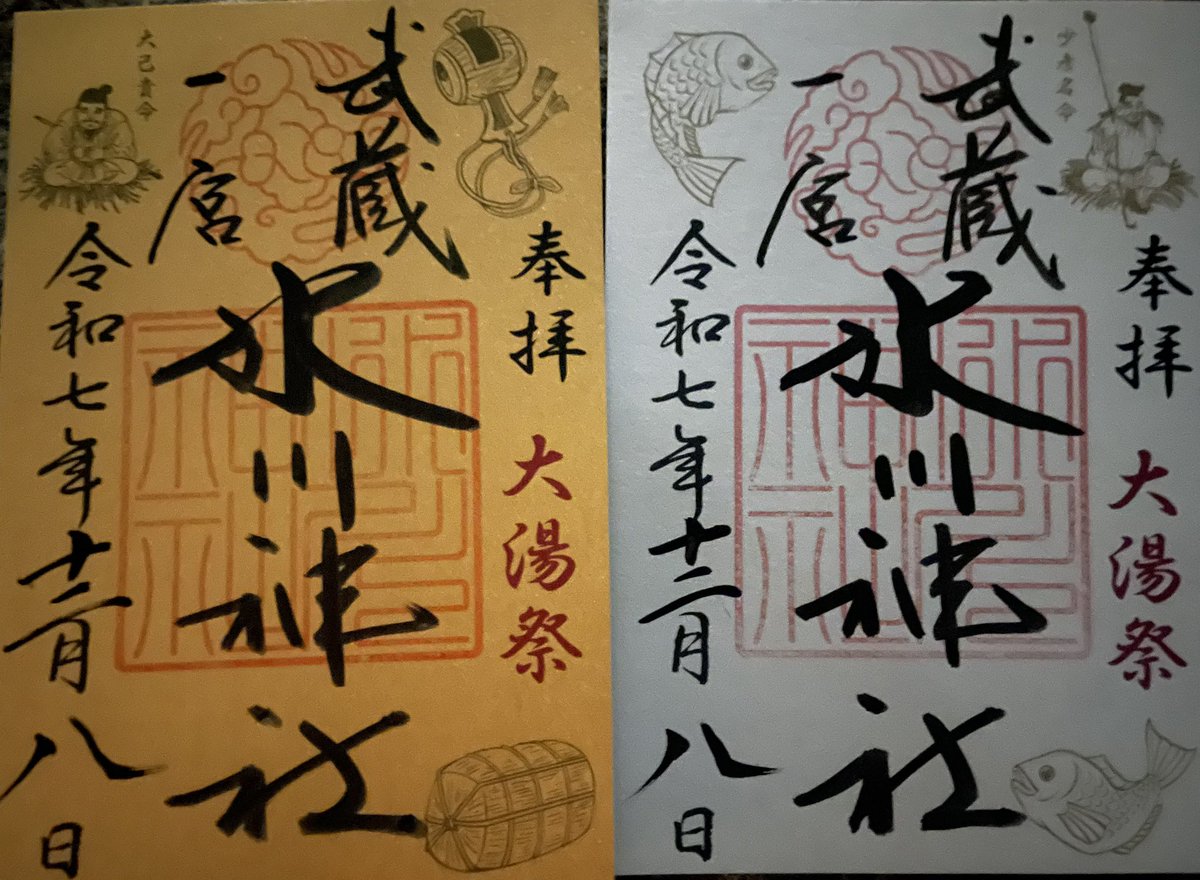 奉拝 大湯祭
武蔵
一宮
氷川神社
大己貴命
令和七年十二月八日
少彦名命
奉拝 大湯祭
武蔵
一宮
氷川神社
令和七年十二月八日